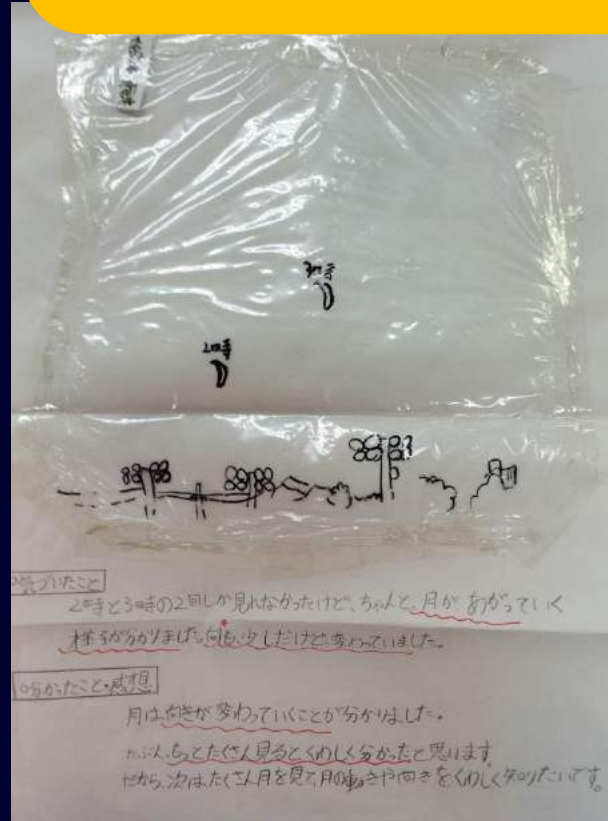 3時
2時
○気づいたこと
2時と3時の2回しか見れなかったけど、ちゃんと、月が、あがっていく
様子が分かりました。向きも、少しだけど、変わっていました。
○分かったこと・感想
月は、向きが変わっていくことが分かりました。
たぶん、もっとたくさん見るとくわしく分かったと思います。
だから、次は、たくさん月を見て、月の動きや向きをくわしく知りたいです。